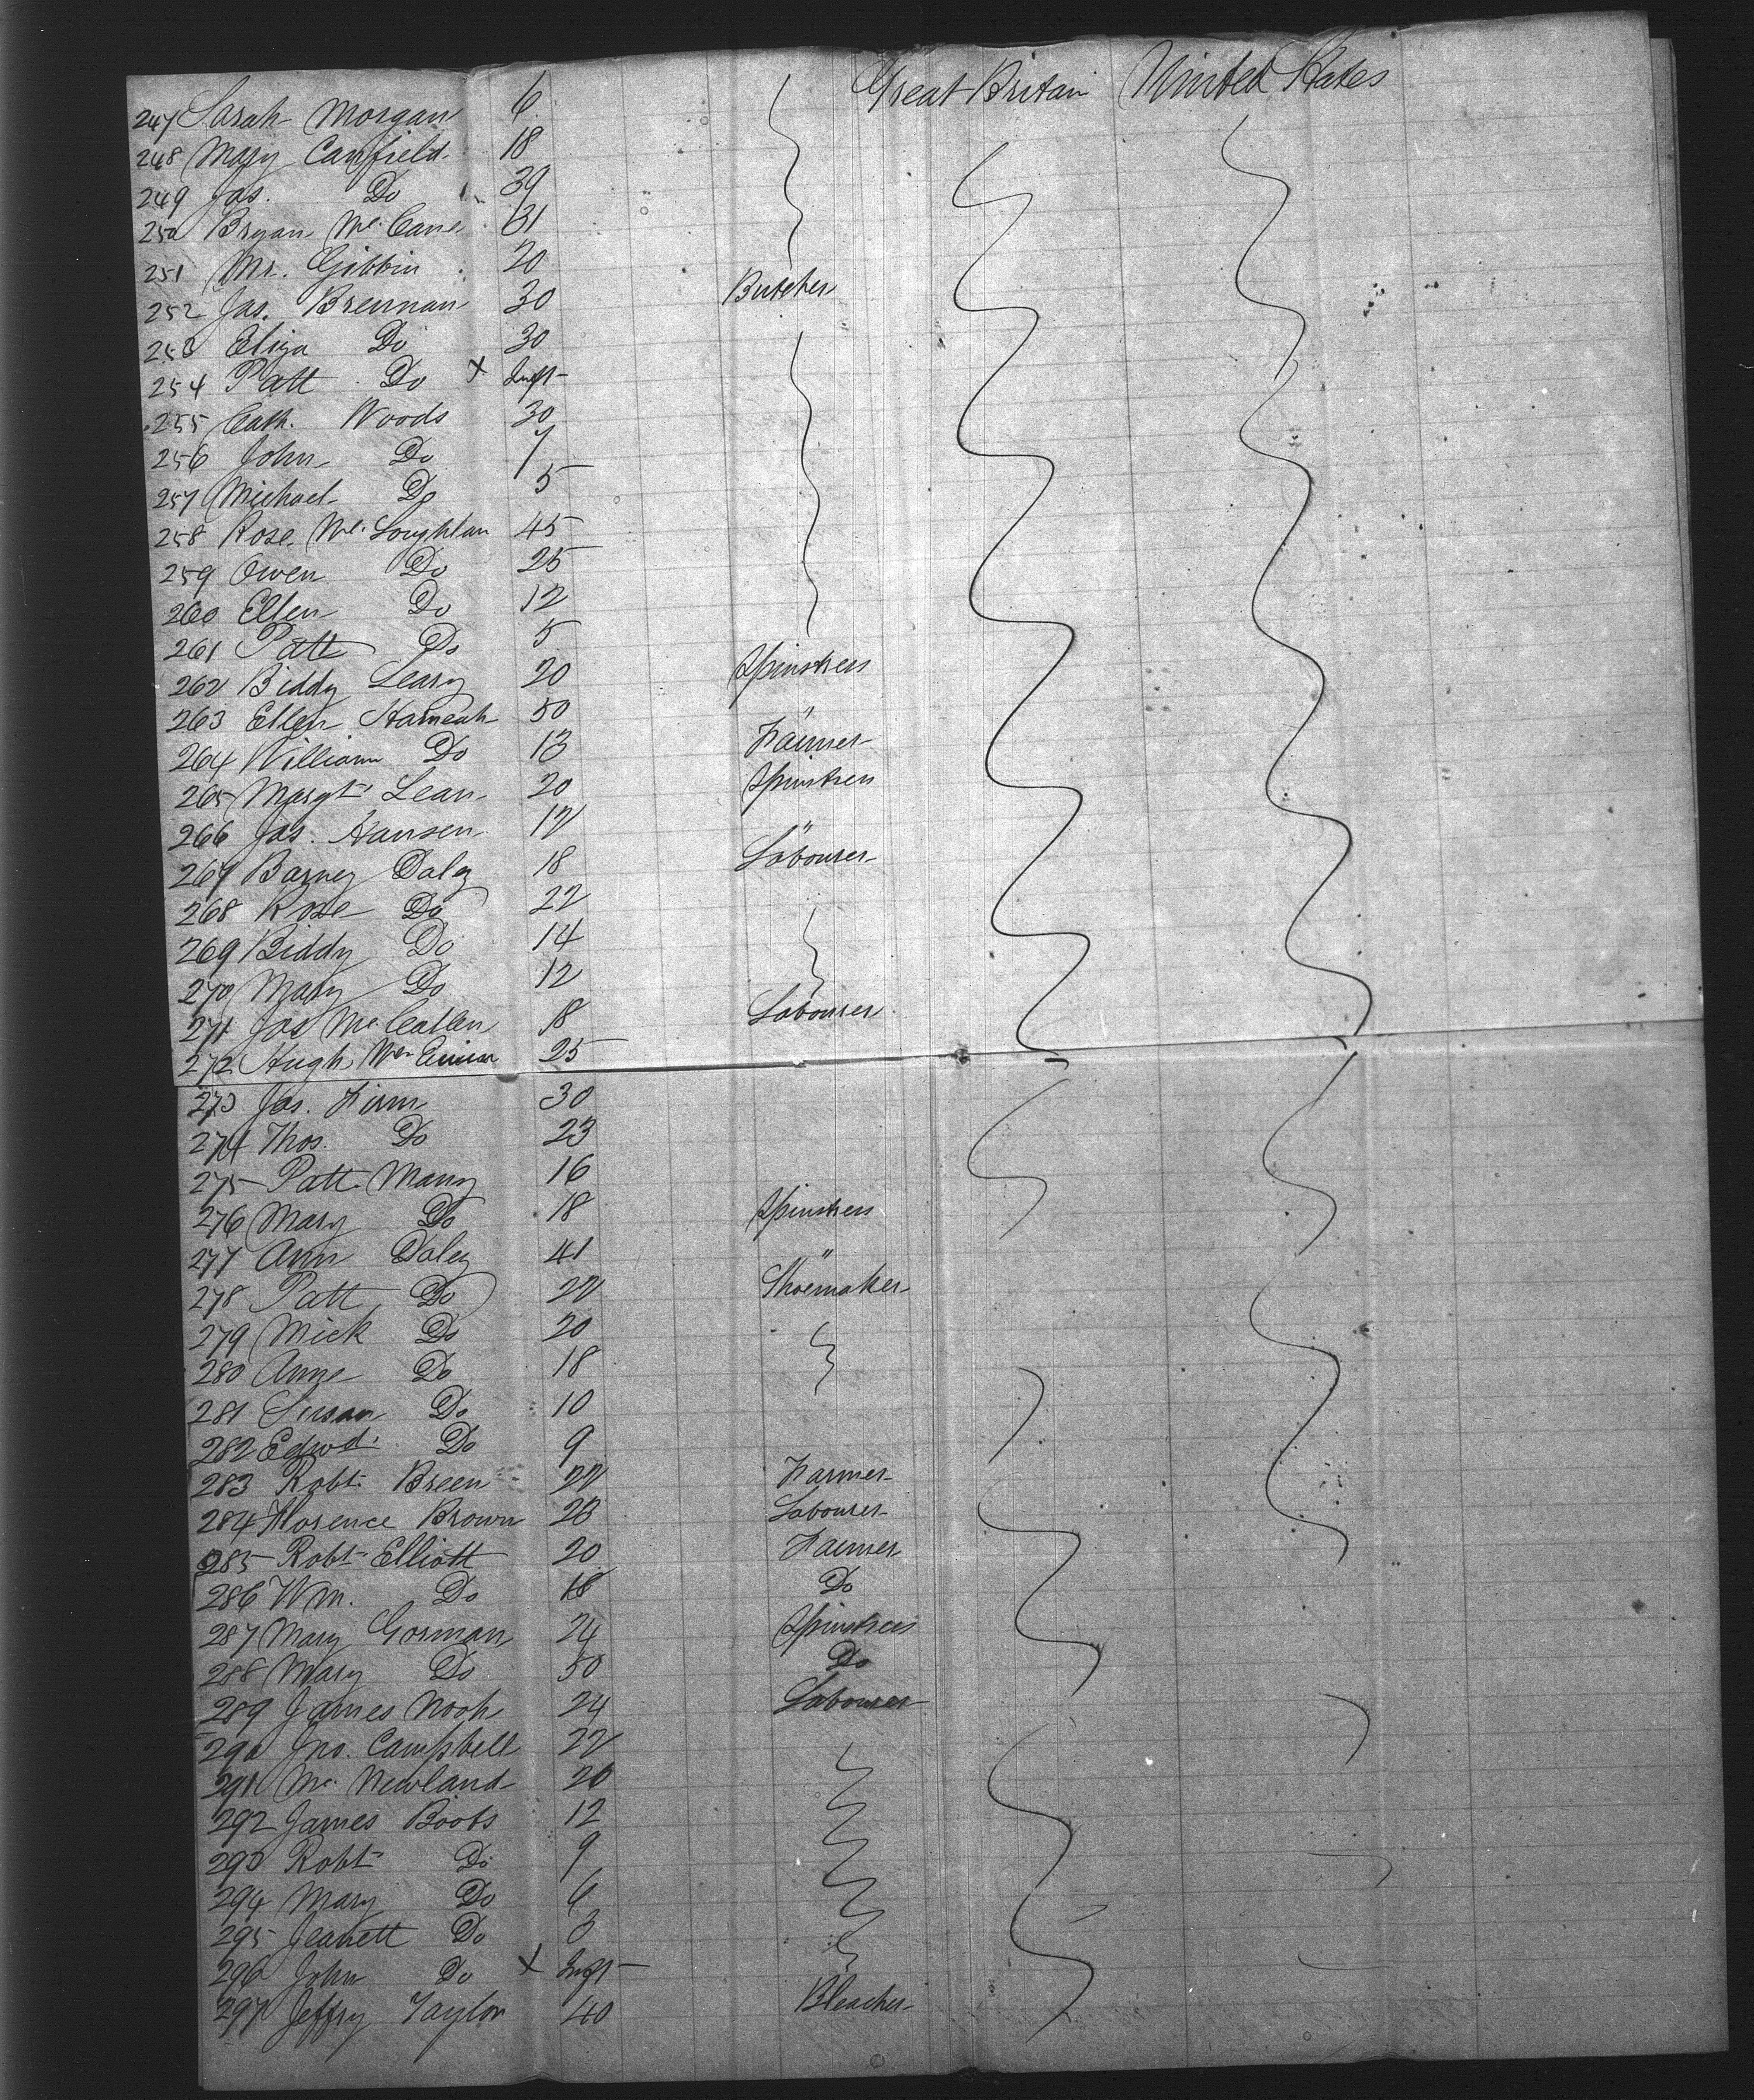 Great Britain United States
247 Sarah Morgan 6
248 Mary Canfield 18
249 Jas. Do 39
250 Bryan Mc. Cane 31
251 Mr. Gibbin 20
252 Jas. Brennan 30 Butcher
253 Eliza Do 30
254 Patt Do X Inft
255 Cath. Woods 30
256 John Do 7
257 Michael Do 5
258 Rose Mc. Loughlan 45
259 Owen Do 25
260 Ellen Do 12
261 Patt Do 5
262 Biddy Leary 20 Spinstress
263 Ellen 50 "
264 William Do 13 Farmer
265 Margt. Lean 20 Spinstress
266 Jas. Hansen 12 "
267 Barney Daley 18 Labourer
268 Rose Do 22
269 Biddy Do 14
270 Mary Do 12
271 Jas Mc. Callen 18 Labourer
272 Hugh Mc. 25
273 Jas. Firm 30
274 Thos. Do 23
275 Patt Many 16
276 Mary Do 18 Spinstress
277 Ann Daley 41 "
278 Patt Do 22 Shoemaker
279 Mick Do 20
280 Anne Do 18
281 Susan Do 10
282 Edwd. Do 9
283 Robt. Breen 22 Farmer
284 Florence Brown 28 Labourer
285 Robt. Elliott 20 Farmer
286 Wm. Do 18 Do
287 Mary Gorman 24 Spinstress
288 Mary Do 50 Do
289 James Nooh 24 Labourer
290 Jno. Campbell 22
291 Mc. Newland 20
292 James Boots 12
293 Robt Do 9
294 Mary Do 6
295 Jeanett Do 3
296 John Do X Inft
297 Jeffry Taylor 40 Bleacher